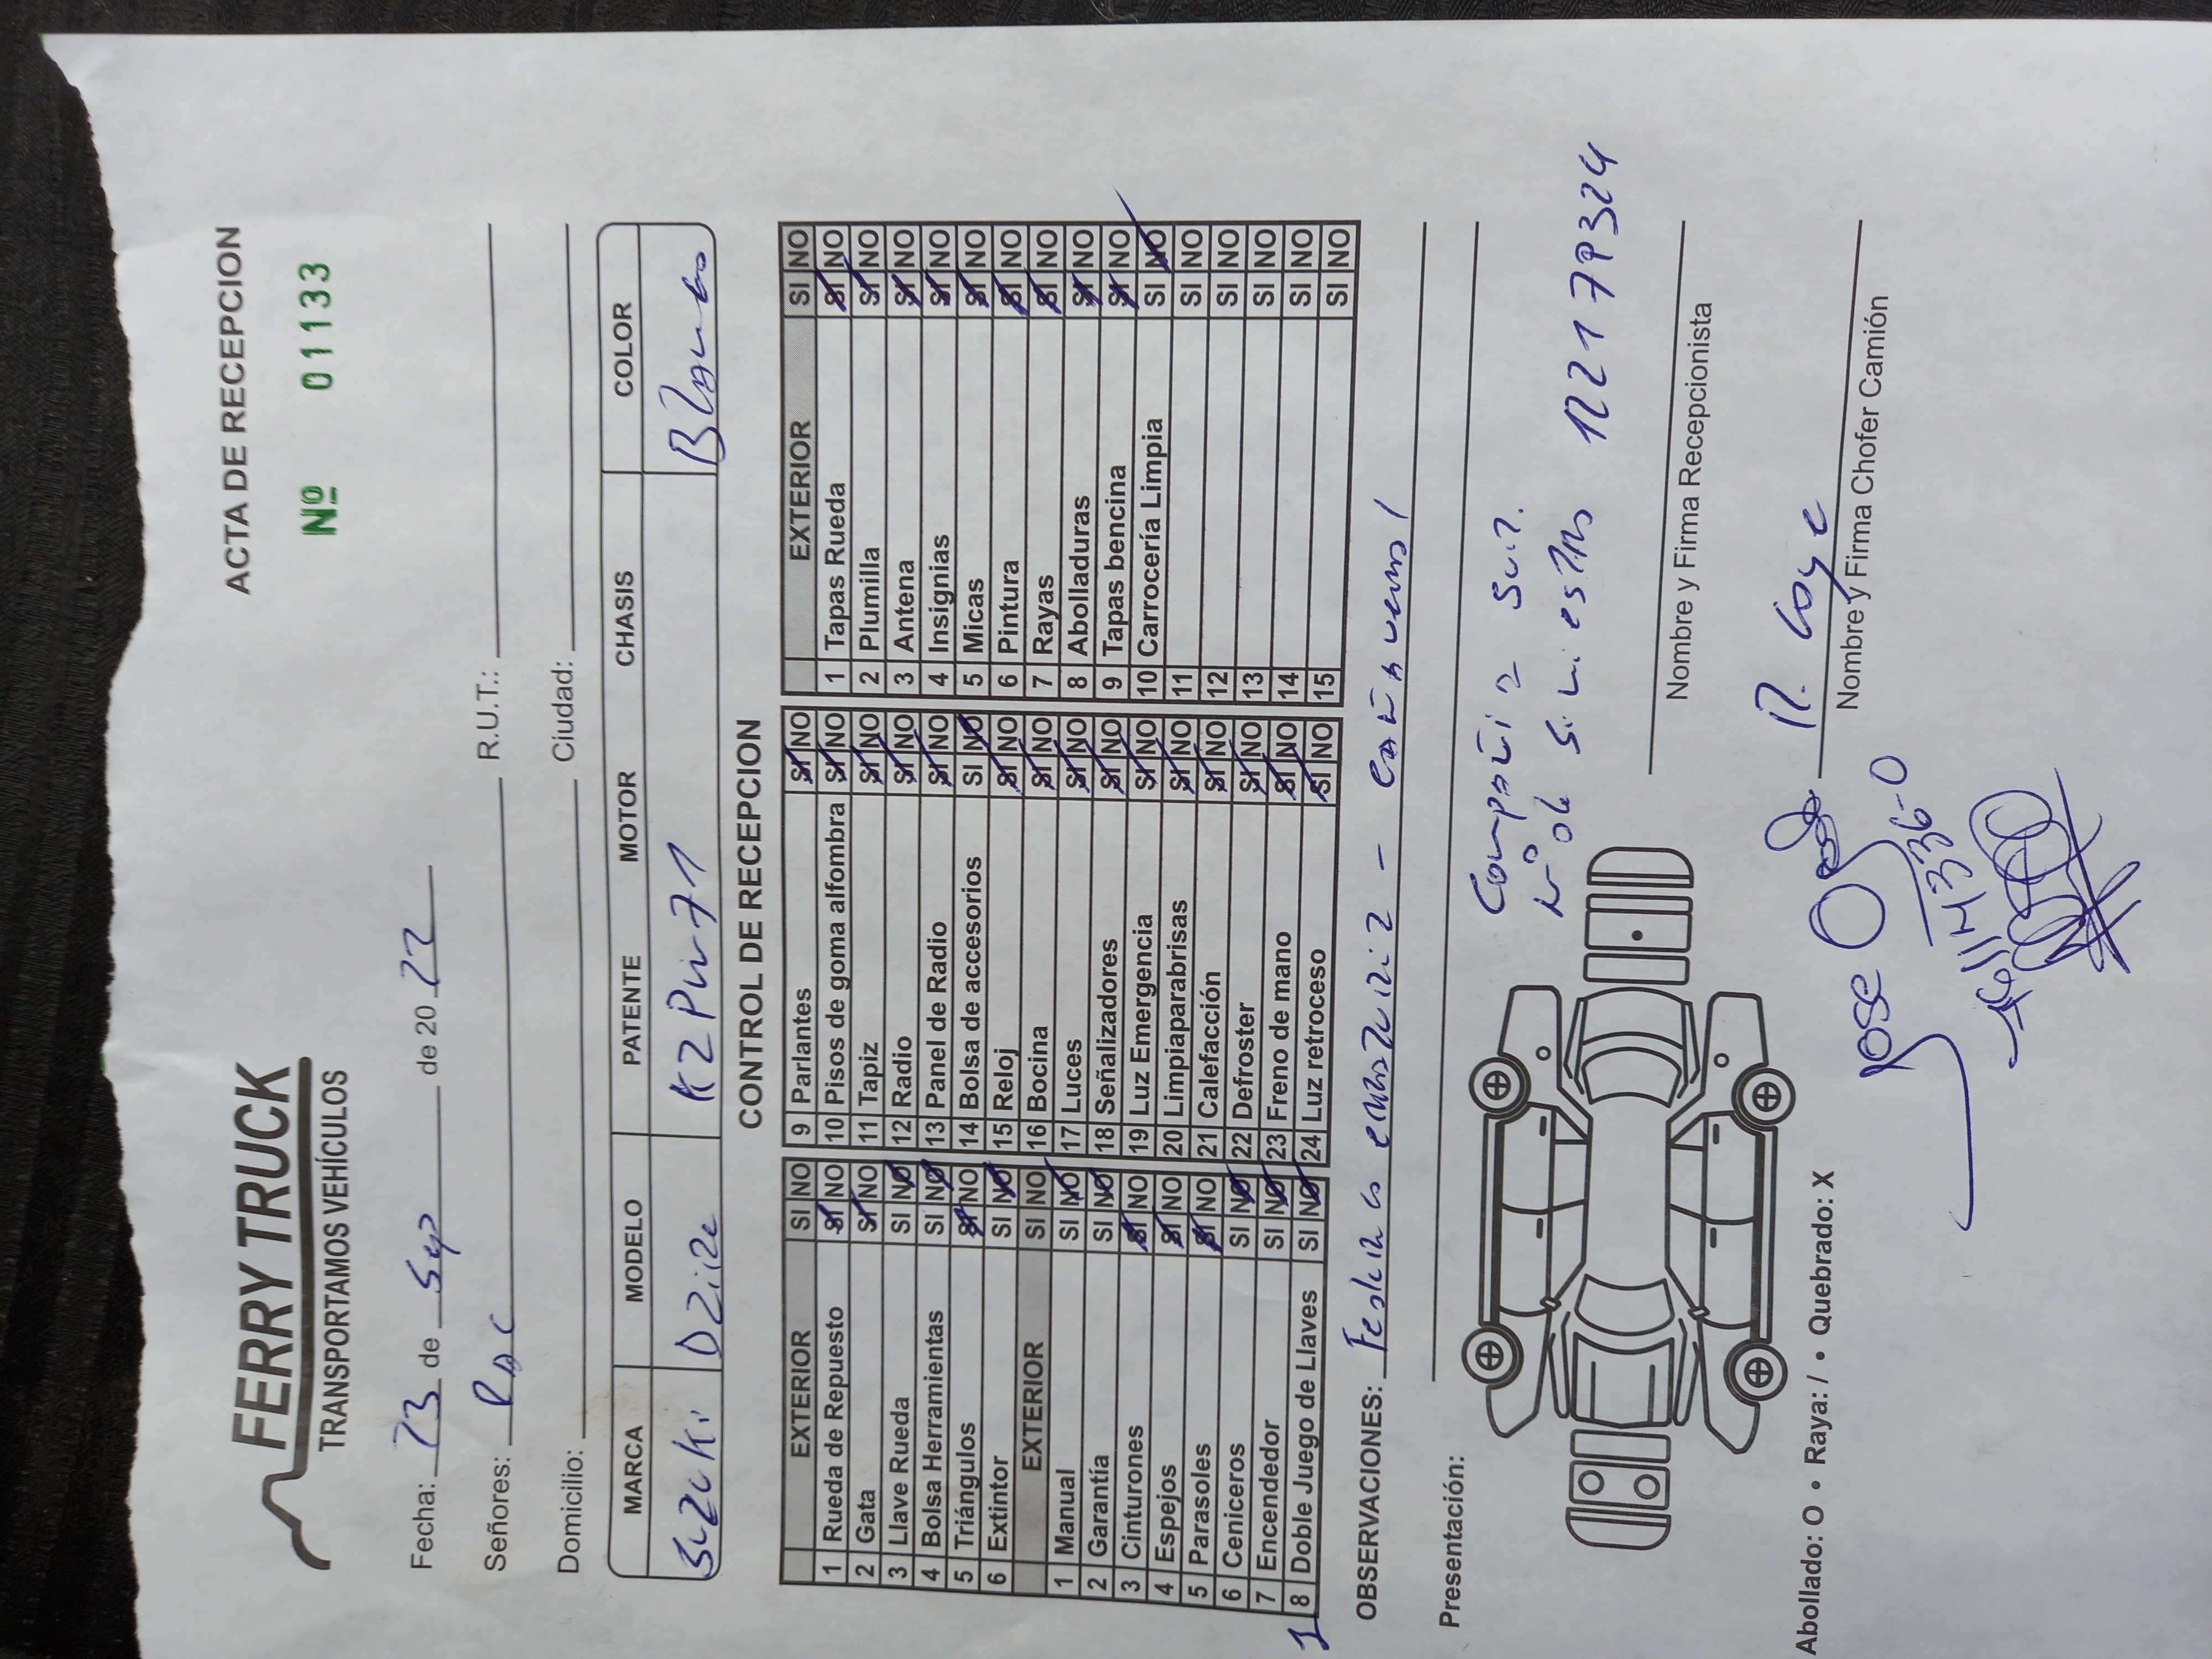 FERRY TRUCK
TRANSPORTAMOS VEHÍCULOS
ACTA DE RECEPCION
Nº 01133
Fecha: 23 de Sep de 20 22
Señores: RAC R.U.T.:
Domicilio: Ciudad:
MARCA MODELO PATENTE MOTOR CHASIS COLOR
Suzuki DZire Blanco
CONTROL DE RECEPCION
EXTERIOR SI NO
1 Rueda de Repuesto SI NO
2 Gata SI NO
3 Llave Rueda SI NO
4 Bolsa Herramientas SI NO
5 Triángulos SI NO
6 Extintor SI NO
EXTERIOR SI NO
1 Manual SI NO
2 Garantía SI NO
3 Cinturones SI NO
4 Espejos SI NO
5 Parasoles SI NO
6 Ceniceros SI NO
7 Encendedor SI NO
1 8 Doble Juego de Llaves SI NO
9 Parlantes SI NO
10 Pisos de goma alfombra SI NO
11 Tapiz SI NO
12 Radio SI NO
13 Panel de Radio SI NO
14 Bolsa de accesorios SI NO
15 Reloj SI NO
16 Bocina SI NO
17 Luces SI NO
18 Señalizadores SI NO
19 Luz Emergencia SI NO
20 Limpiaparabrisas SI NO
21 Calefacción SI NO
22 Defroster SI NO
23 Freno de mano SI NO
24 Luz retroceso SI NO
EXTERIOR SI NO
1 Tapas Rueda SI NO
2 Plumilla SI NO
3 Antena SI NO
4 Insignias SI NO
5 Micas SI NO
6 Pintura SI NO
7 Rayas SI NO
8 Abolladuras SI NO
9 Tapas bencina SI NO
10 Carrocería Limpia SI NO
11 SI NO
12 SI NO
13 SI NO
14 SI NO
15 SI NO
OBSERVACIONES:
Presentación:
Compañia Sura.
Nº de siniestro
Nombre y Firma Recepcionista
Nombre y Firma Chofer Camión
Jose
Abollado: O • Raya: / • Quebrado: X